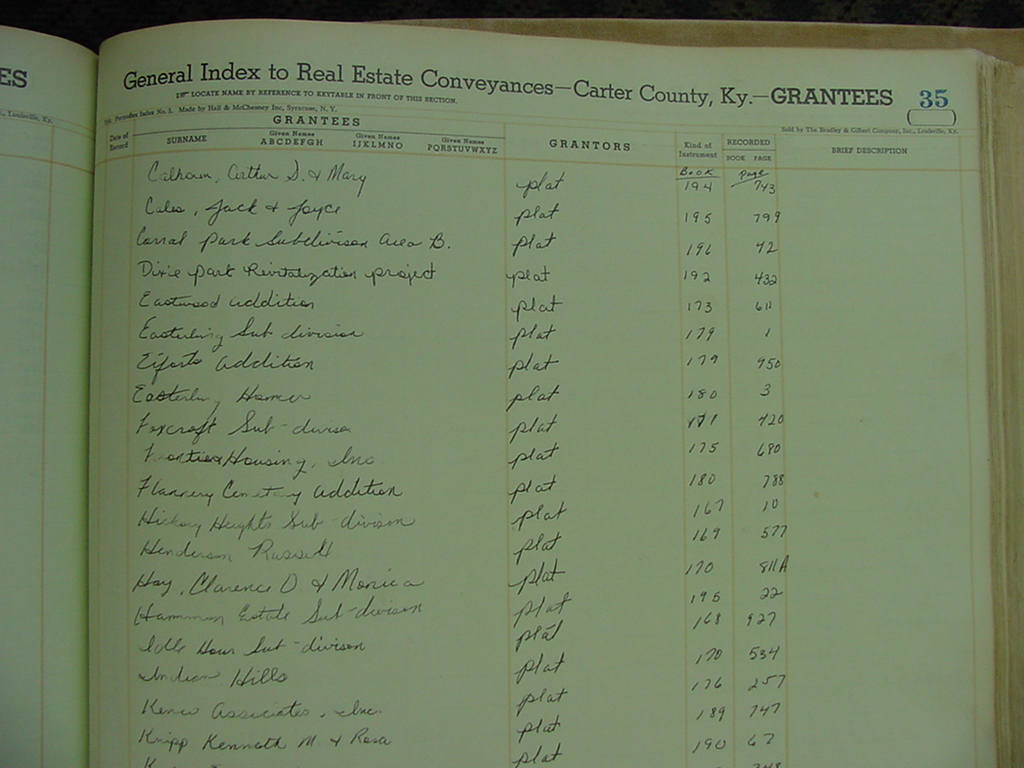 ES
, Louisville, Ky.
General Index to Real Estate Conveyances—Carter County, Ky.—GRANTEES 35
LOCATE NAME BY REFERENCE TO KEYTABLE IN FRONT OF THIS SECTION.
Index No. 1. Made by Hall & McChesney Inc, Syracuse, N. Y.
Sold by The Bradley & Gilbert Company, Inc., Louisville, Ky.
GRANTEES
Date of Record SURNAME Given Names ABCDEFGH Given Names IJKLMNO Given Names PQRSTUVWXYZ GRANTORS Kind of Instrument RECORDED BOOK PAGE BRIEF DESCRIPTION
Book Page
Calhoun, Arthur S. & Mary plat 194 743
Coles, Jack & Joyce plat 195 799
Corral Park Subdivison Area B. plat 196 42
Dixie Park Revitalization project plat 192 432
Eastwood addition plat 173 611
Easterling Sub division plat 179 1
Eiforts addition plat 179 950
Easterling Homer plat 180 3
Foxcroft Sub-divison plat 420
Frontier Housing, Inc plat 175 680
Flannery Cemetery addition plat 180 788
Hickory Heights Sub-divison plat 167 10
Henderson Russell plat 169 577
Hay, Clarence D. & Monica plat 170 811A
Hamman Estate Sub-divison plat 195 22
Idle Hour Sub-divison plat 168 927
Indian Hills plat 170 534
Kenco Associates, Inc. plat 176 257
Knipp Kenneth M & Rosa plat 189 747
plat 190 67